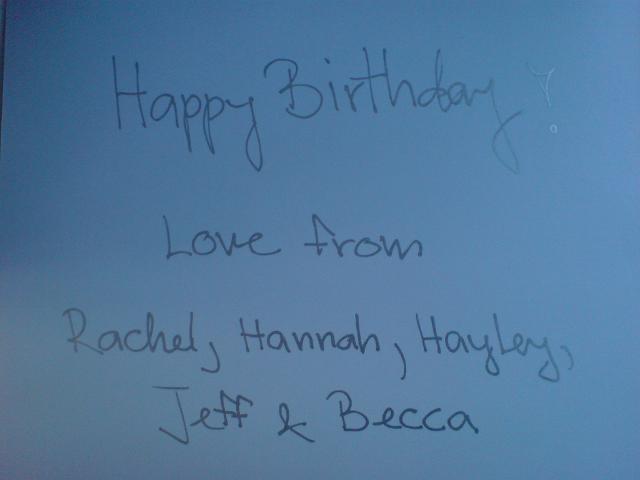 Happy Birthday!
Love from
Rachel, Hannah, Hayley,
Jeff & Becca